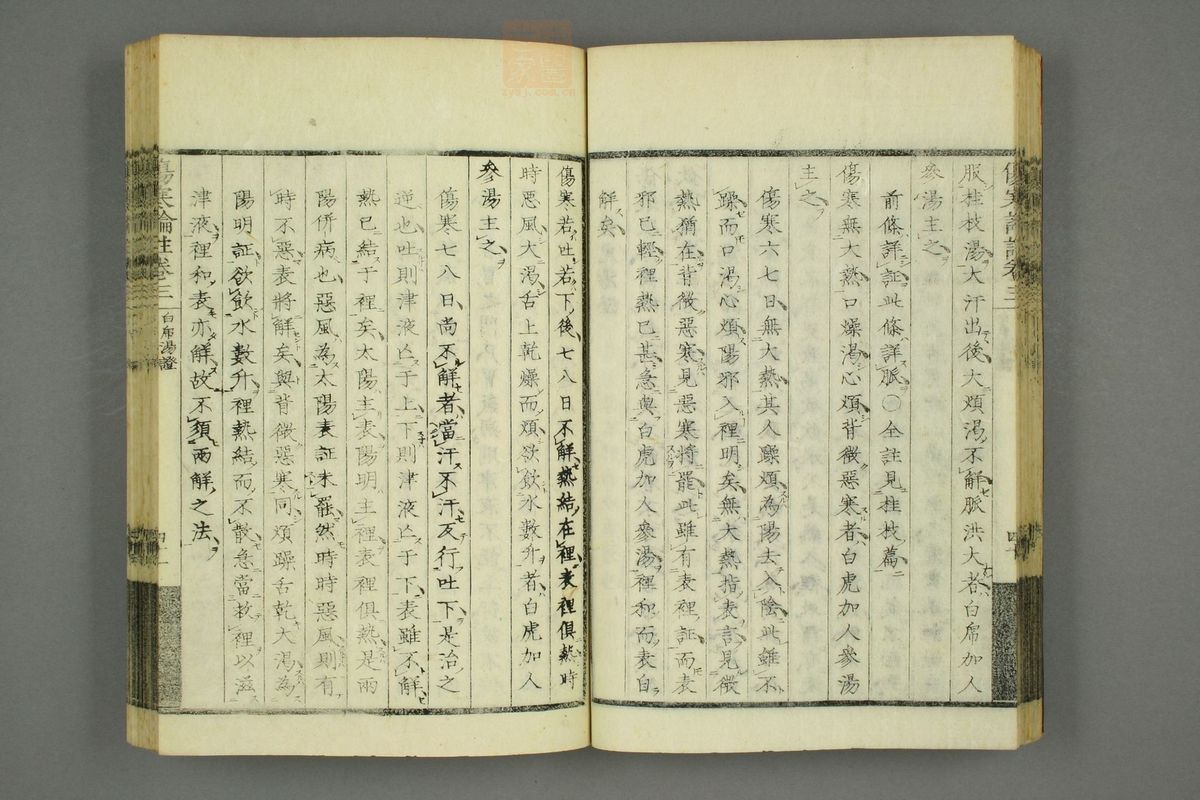 服桂枝湯大汗出後大煩渴不解脈洪大者白虎加人
參湯主之
前條詳証此條詳脈○全註見桂枝篇
傷寒無大熱口燥渴心煩背微惡寒者白虎加人參湯
主之
傷寒六七日無大熱其人躁煩為陽去入陰此雖不
躁而口渴心煩陽邪入裡明矣無大熱指表言見微
熱猶在背微惡寒見惡寒將罷此雖有表裡証而表
邪已輕裡熱已甚急與白虎加人參湯裡和而表自
解矣
傷寒若吐若下後七八日不解熱結在裡表裡俱熱時
時惡風大渴舌上乾燥而煩欲飲水數升者白虎加人
參湯主之
傷寒七八日尚不解者當汗不汗反行吐下是治之
逆也吐則津液亾于上下則津液亾于下表雖不解
熱已結于裡矣太陽主表陽明主裡表裡俱熱是兩
陽併病也惡風為太陽表証未罷然時時惡風則有
時不惡表將解矣與背微惡寒同煩躁舌乾大渴為
陽明証欲飲水數升裡熱結而不散急當救裡以滋
津液裡和表亦解故不須兩解之法
傷寒論註卷三
白虎湯證
四
zysj.com.cn